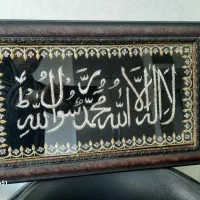 لا إله إلا الله محمد رسول الله
51